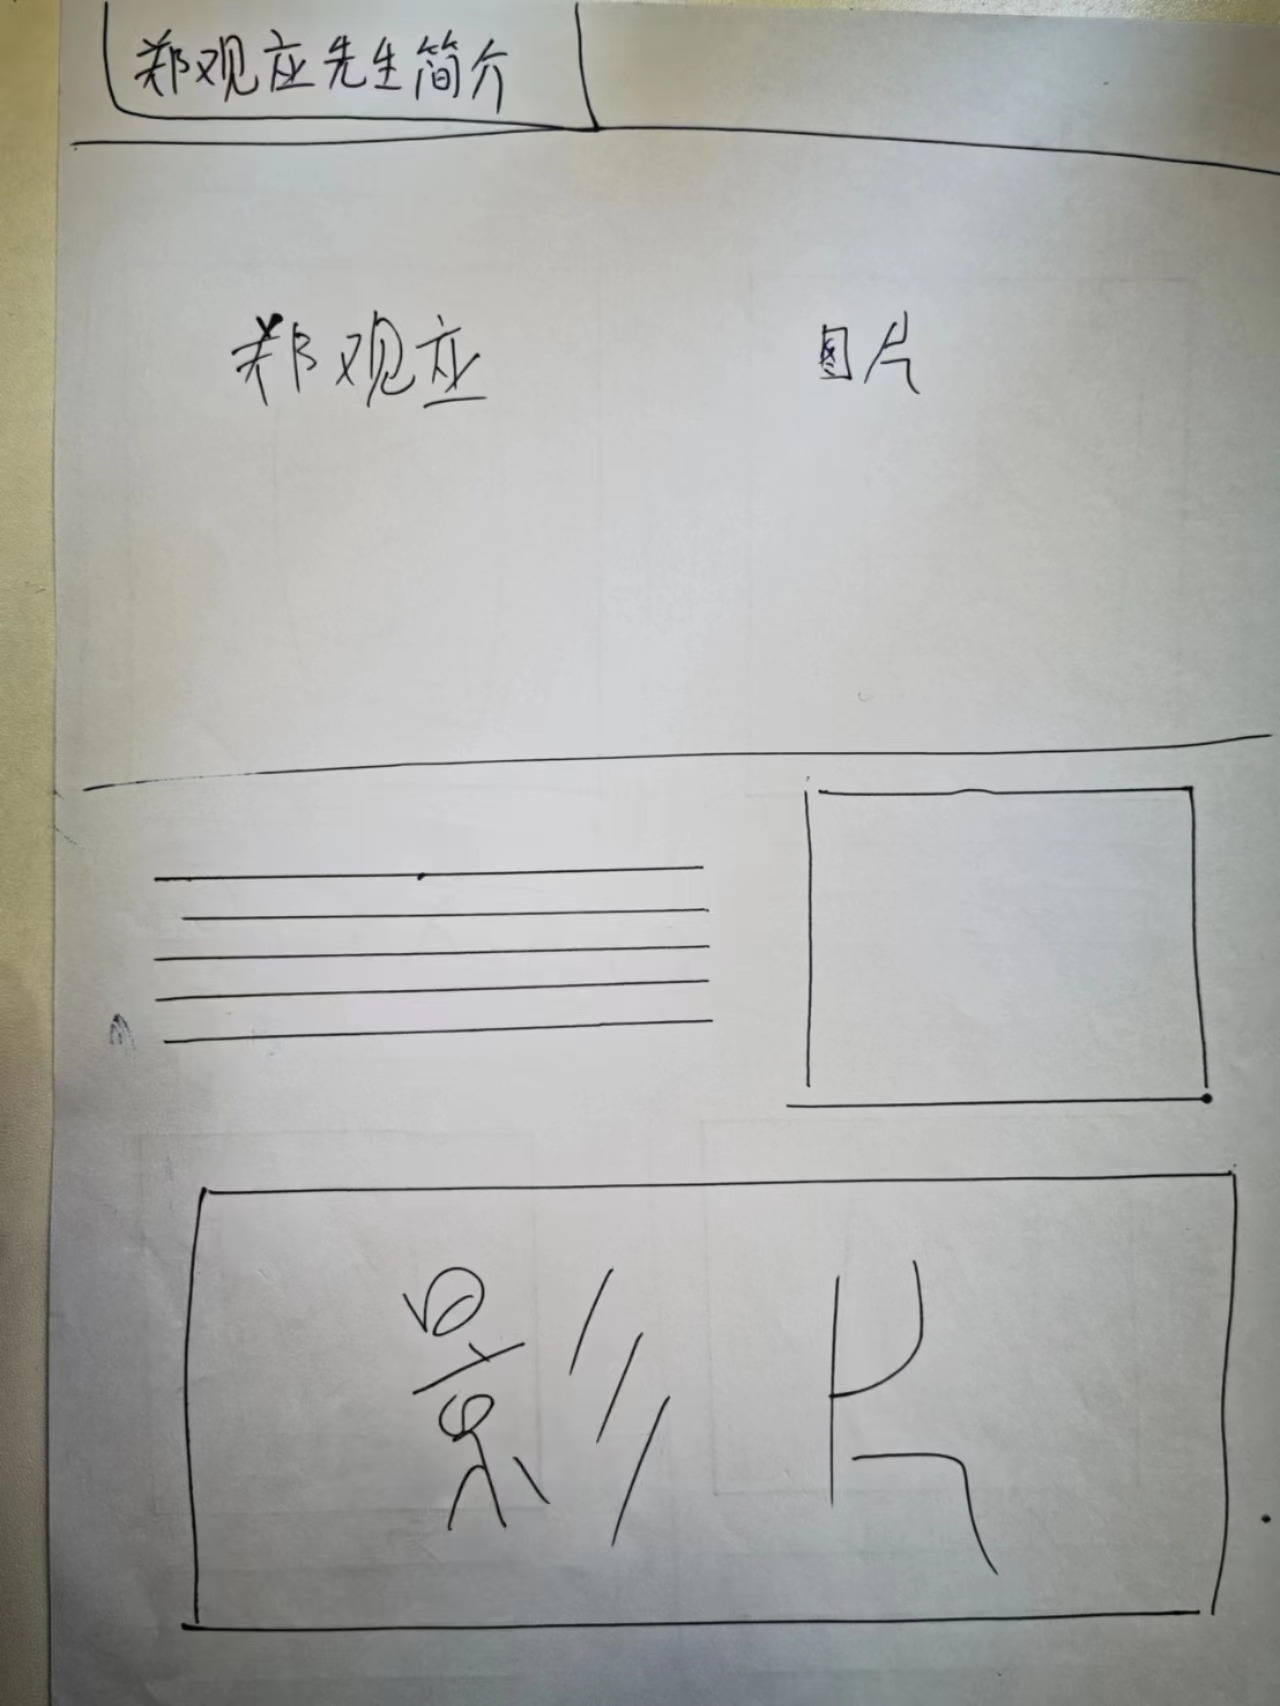 郑观应先生简介
郑观应 图片
影片